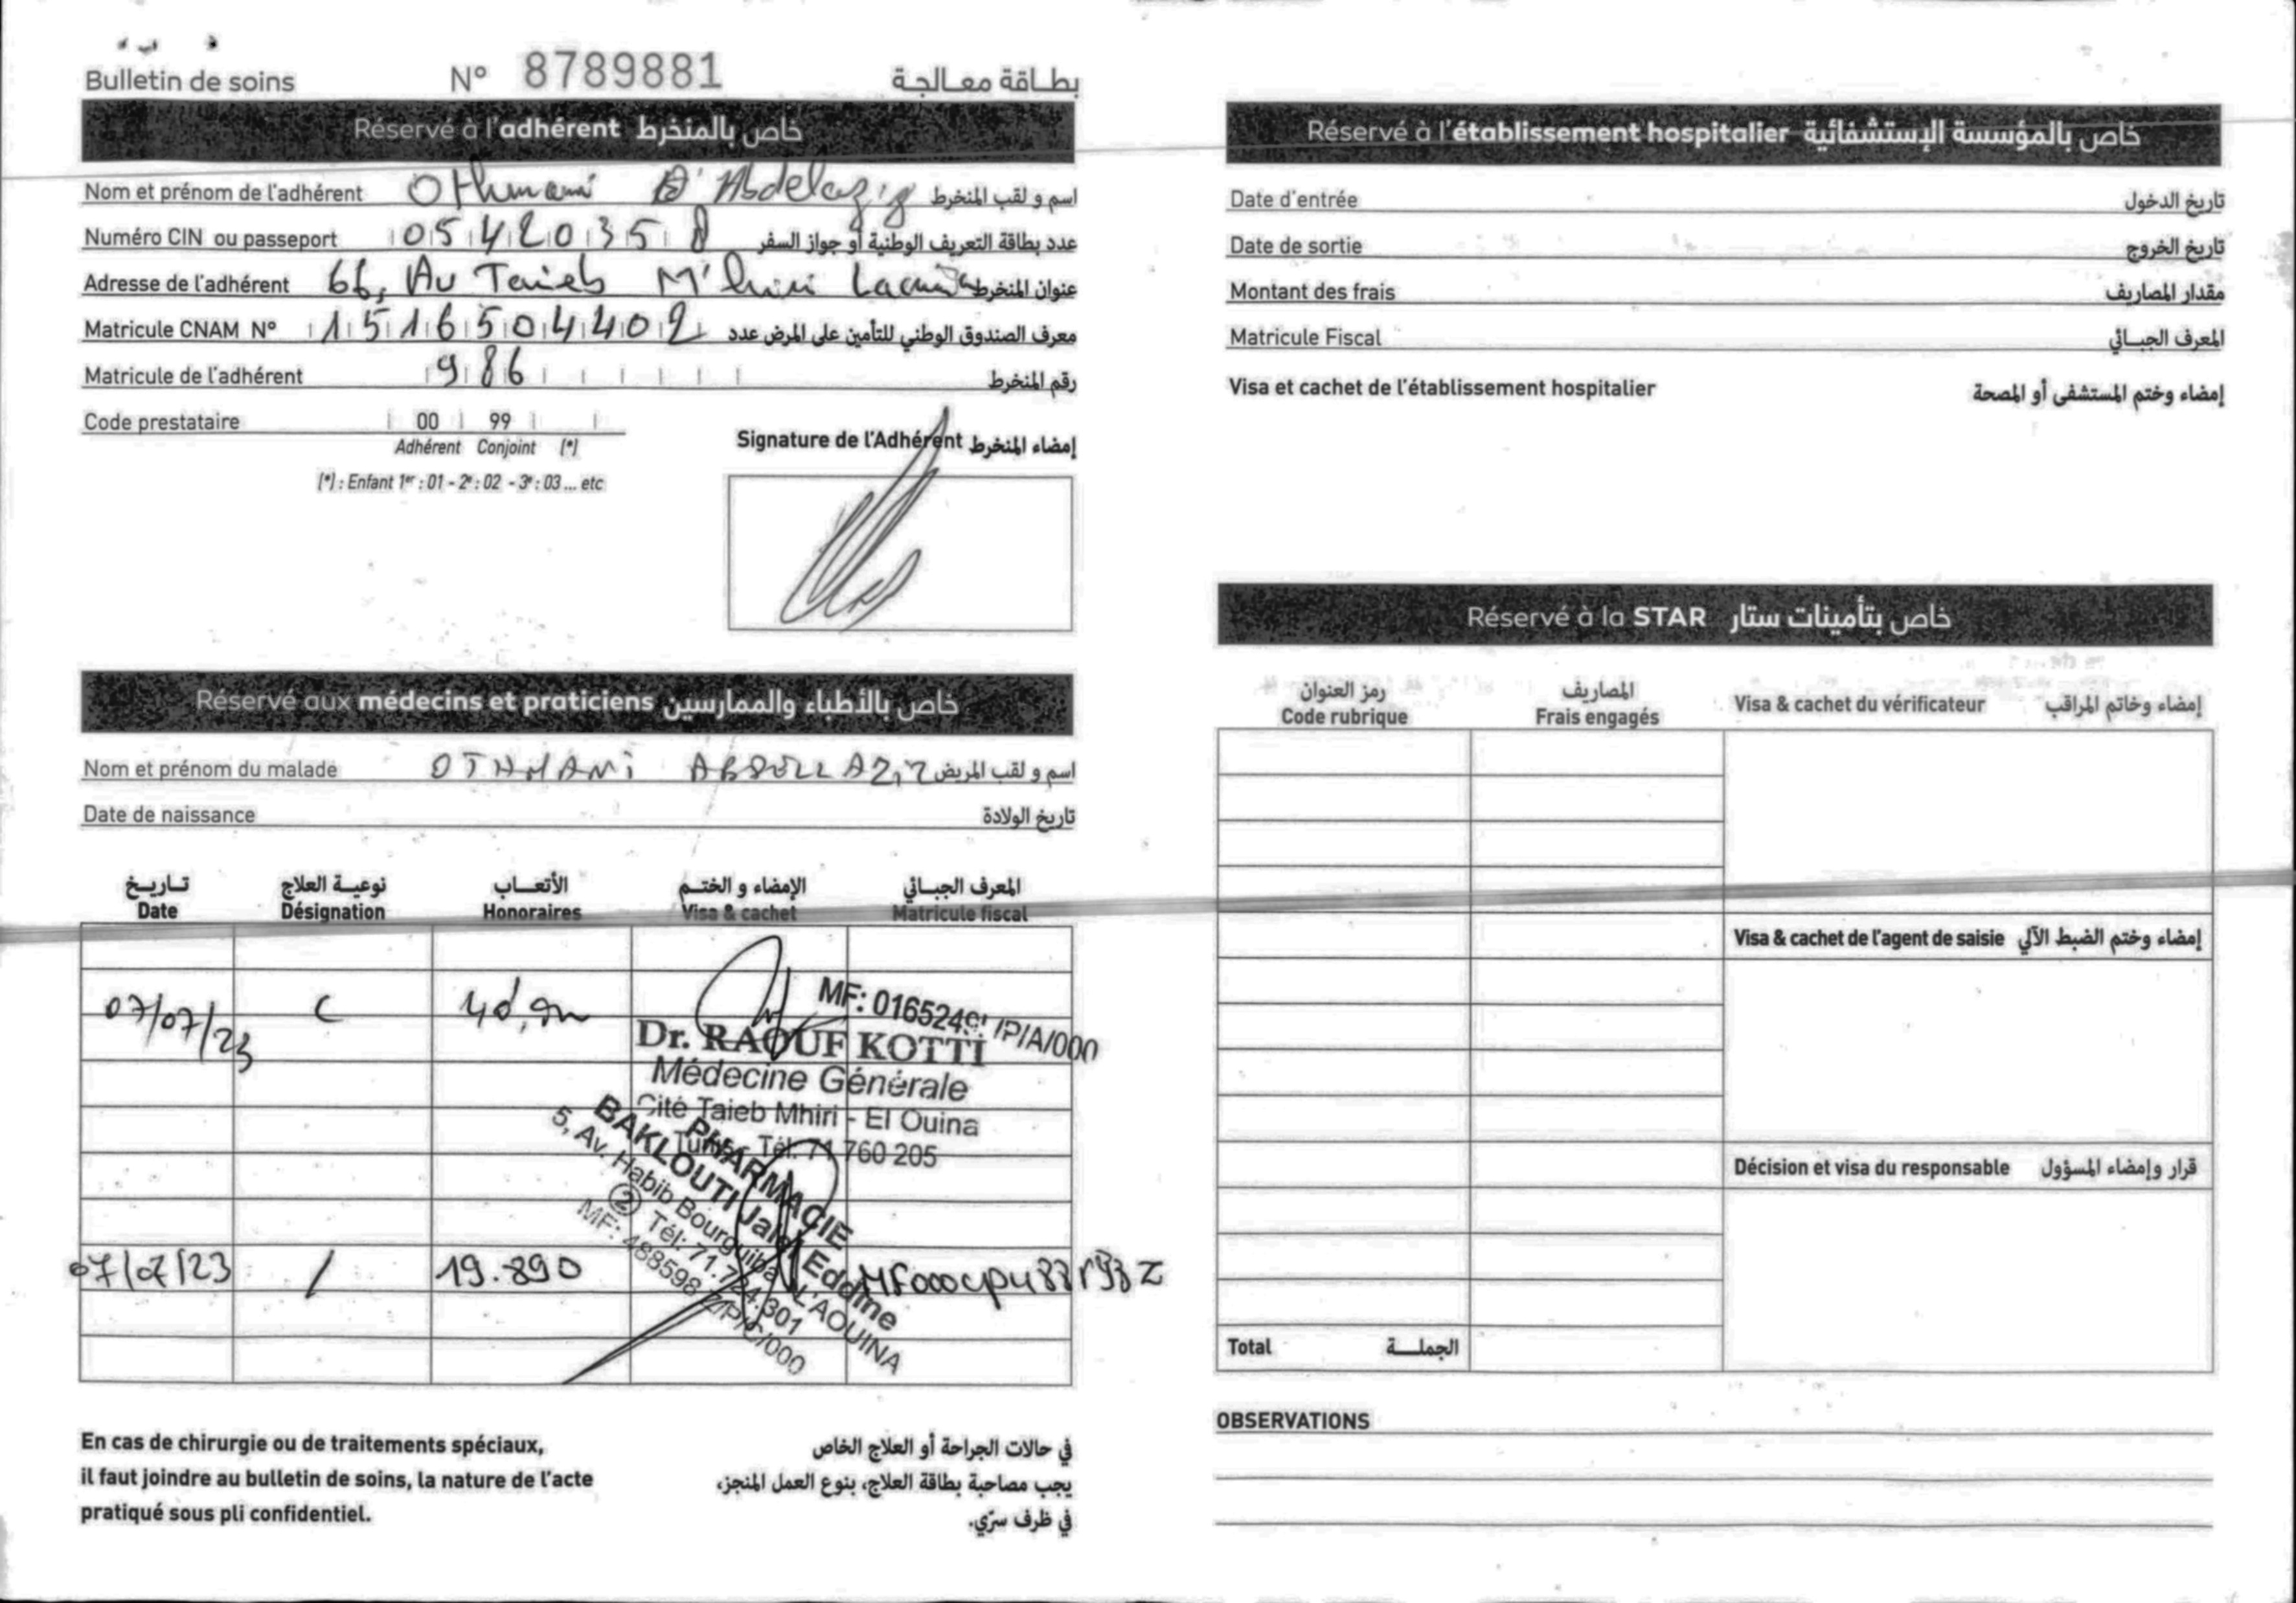 Bulletin de soins N° 8789881 بطاقة معالجة
Réservé à l'adhérent خاص بالمنخرط
Nom et prénom de l'adhérent Othmani Abdelaziz اسم و لقب المنخرط
Numéro CIN ou passeport 05420358 عدد بطاقة التعريف الوطنية أو جواز السفر
Adresse de l'adhérent 66, Av Taieb M'hiri عنوان المنخرط
Matricule CNAM N° 1516504402 معرف الصندوق الوطني للتأمين على المرض عدد
Matricule de l'adhérent 986 رقم المنخرط
Code prestataire 00 99
Adhérent Conjoint (*)
(*) : Enfant 1er : 01 - 2e : 02 - 3e : 03 ... etc
Signature de l'Adhérent إمضاء المنخرط
Réservé aux médecins et praticiens خاص بالأطباء والممارسين
Nom et prénom du malade OTHMANI ABDELLAZIZ اسم و لقب المريض
Date de naissance تاريخ الولادة
تاريخ نوعية العلاج الأتعاب الإمضاء و الختم المعرف الجبائي
Date Désignation Honoraires Visa & cachet Matricule fiscal
07/07/23 C
MF: 0165249 /P/A/000
Dr. RAOUF KOTTI
Médecine Générale
Cité Taieb Mhiri - El Ouina
Tunis Tél: 71 760 205
PHARMACIE
BAKLOUTI Jalel Eddine
5, Av. Habib Bourguiba L'AOUINA
② Tél: 71.724.301
MF: 488598 Z/P/C/000
07/07/23 / 19.890
En cas de chirurgie ou de traitements spéciaux,
il faut joindre au bulletin de soins, la nature de l'acte
pratiqué sous pli confidentiel.
في حالات الجراحة أو العلاج الخاص
يجب مصاحبة بطاقة العلاج، بنوع العمل المنجز،
في ظرف سرّي.
Réservé à l'établissement hospitalier خاص بالمؤسسة الإستشفائية
Date d'entrée تاريخ الدخول
Date de sortie تاريخ الخروج
Montant des frais مقدار المصاريف
Matricule Fiscal المعرف الجبائي
Visa et cachet de l'établissement hospitalier إمضاء وختم المستشفى أو المصحة
Réservé à la STAR خاص بتأمينات ستار
رمز العنوان المصاريف
Code rubrique Frais engagés Visa & cachet du vérificateur إمضاء وخاتم المراقب
Visa & cachet de l'agent de saisie إمضاء وختم الضبط الآلي
Décision et visa du responsable قرار وإمضاء المسؤول
Total الجملة
OBSERVATIONS